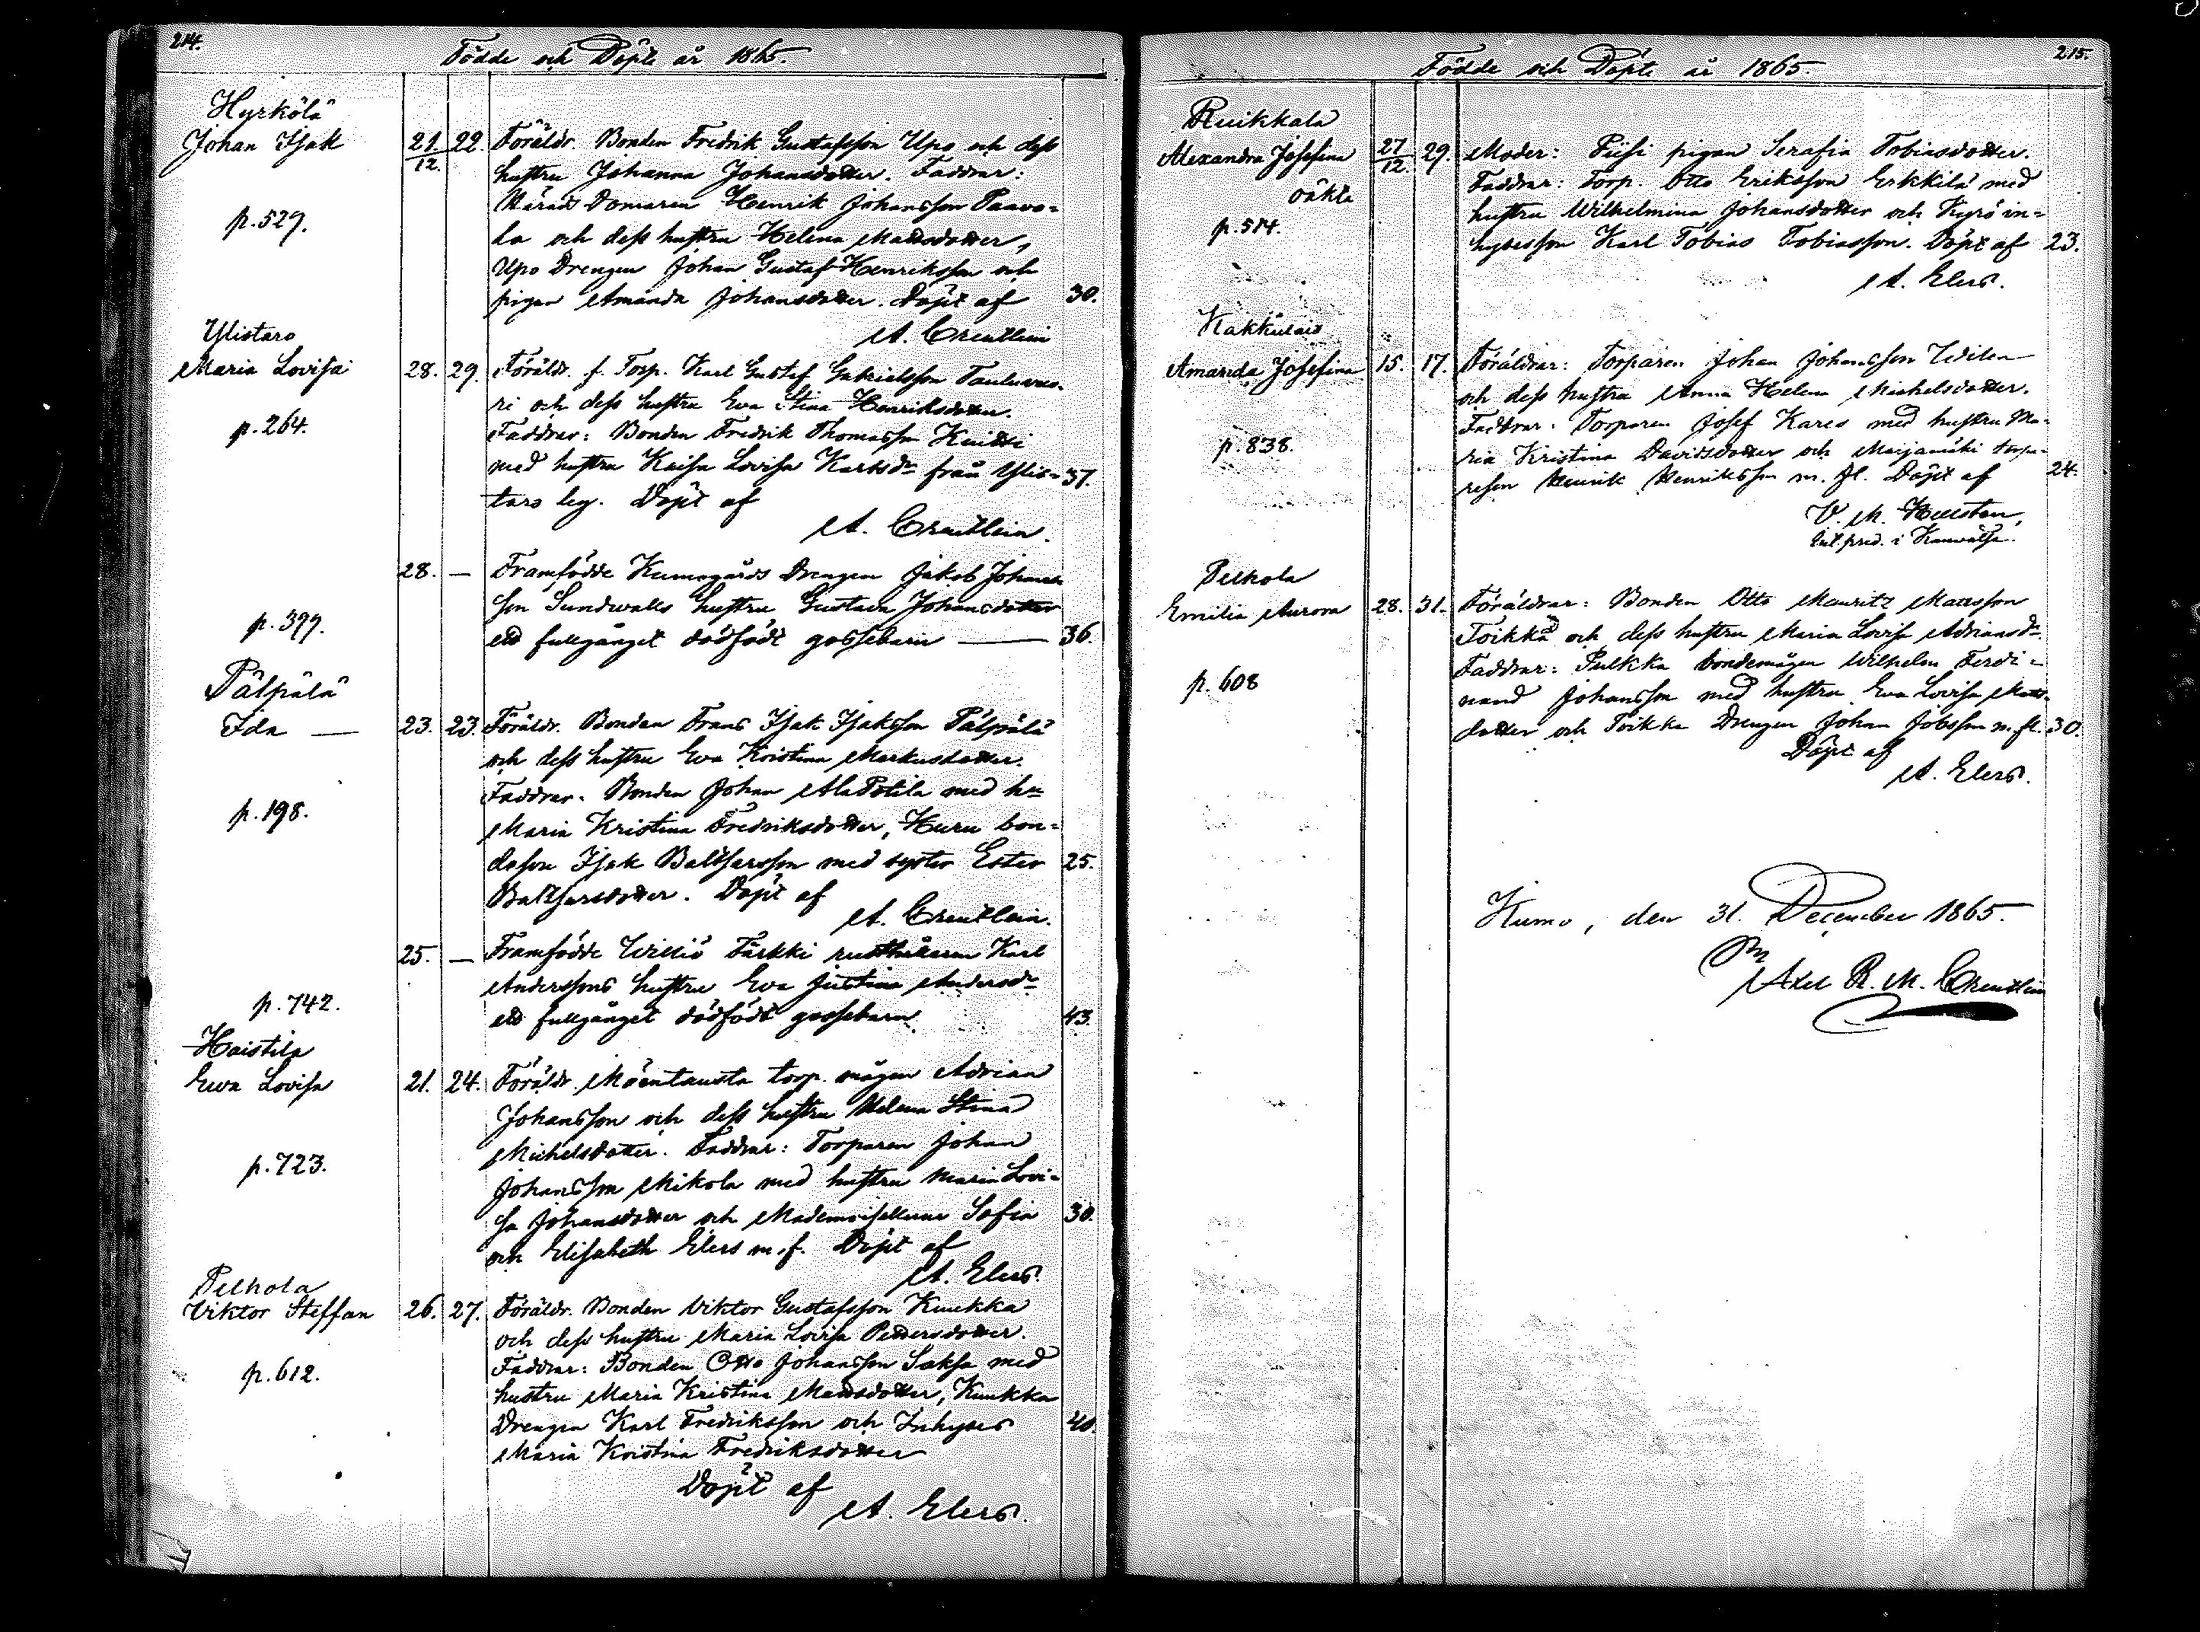 214.
Födde och Döpte år 1865.
Hyrkölä
Johan Isak 21/12. 22. Föräldr. Bonden Fredrik Gustafsson Upo och dess
hustru Johanna Johansdotter. Faddrar:
Härads Domaren Henrik Johansson Paavo-
p. 529.
la och dess hustru Helena Mattsdotter,
Upo Drengen Johan Gustaf Henriksson och
pigan Amanda Johansdotter. Döpt af 30.
A. Creutlein
Ylistaro
Maria Lovisa 28. 29. Föräldr. f. Torp. Karl Gustaf Gabrielsson Tauluvuo-
ri och dess hustru Eva Stina Henriksdotter.
p. 264.
Faddrar: Bonden Fredrik Thomasson Knitti
med hustru Kaisa Lovisa Karlsdr från Ylis- 37.
taro by. Döpt af
A. Creutlein.
28. — Framfödde Kumogårds Drengen Jakob Johans-
son Sundwalls hustru Gustava Johansdotter
p. 399.
ett fullgånget dödfödt gossebarn — 36.
Pälpälä
Ida — 23. 23. Föräldr. Bonden Frans Isak Isaksson Pälpälä
och dess hustru Eva Kristina Markusdotter.
Faddrar. Bonden Johan AlaPotila med hu
p. 198.
Maria Kristina Fredriksdotter, Huru bon-
deson Isak Baltsarsson med syster Ester 25.
Baltsarsdotter. Döpt af
A. Creutlein.
25. — Framfödde Villiö Tärkki rusthållaren Karl
Anderssons hustru Eva Justina Andersdr
p. 742.
ett fullgånget dödfödt gossebarn. 43.
Haistila
Ewa Lovisa 21. 24. Föräldr. Mäentausta torp. mågen Adrian
Johansson och dess hustru Helena Stina
Michelsdotter. Faddrar: Torparen Johan
p. 723.
Johansson Mikola med hustru Maria Lovi-
sa Johansdotter och Mademoisellerne Sofia 30.
och Elisabeth Elers m.f. Döpt af
A. Elers.
Pelhola
Viktor Steffan 26. 27. Föräldr. Bonden Viktor Gustafsson Kuukka
och dess hustru Maria Lovisa Pettersdotter.
Faddrar: Bonden Otto Johansson Saksa med
p. 612.
hustru Maria Kristina Mattsdotter, Kuukka
Drengen Karl Fredriksson och Inhyses 40.
Maria Kristina Fredriksdotter
Döpt af
A. Elers.
215.
Födde och Döpte år 1865.
Ruikkala
Alexandra Josefina 27/12. 29. Moder: Piisi pigan Serafia Tobiasdotter.
oäkta
Faddrar: Torp. Otto Eriksson Erkkilä med
hustru Wilhelmina Johansdotter och Kyrö in-
p. 514.
hysesson Karl Tobias Tobiasson. Döpt af 23.
A. Elers.
Kakkulais
Amanda Josefina 15. 17. Föräldrar: Torparen Johan Johansson Widen
och dess hustru Anna Helena Michelsdotter.
Faddrar: Torparen Josef Kares med hustru Ma-
p. 838.
ria Kristina Davidsdotter och Maijamäki torpa-
reson Henrik Henriksson m. fl. Döpt af 24.
V. M.
pred. i
Pelhola
Emilia Aurora 28. 31. Föräldrar: Bonden Otto Mauritz Mattsson
Toikka och dess hustru Maria Lovisa Adriansdr.
Faddrar: Pulkka bondemågen Wilhelm Ferdi-
p. 608
nand Johansson med hustru Eva Lovisa Matts-
dotter och Toikka Drengen Johan Jobsson m. fl. 30.
Döpt af
A. Elers.
Kumo, den 31. December 1865.
Axel R. M. Creutlein